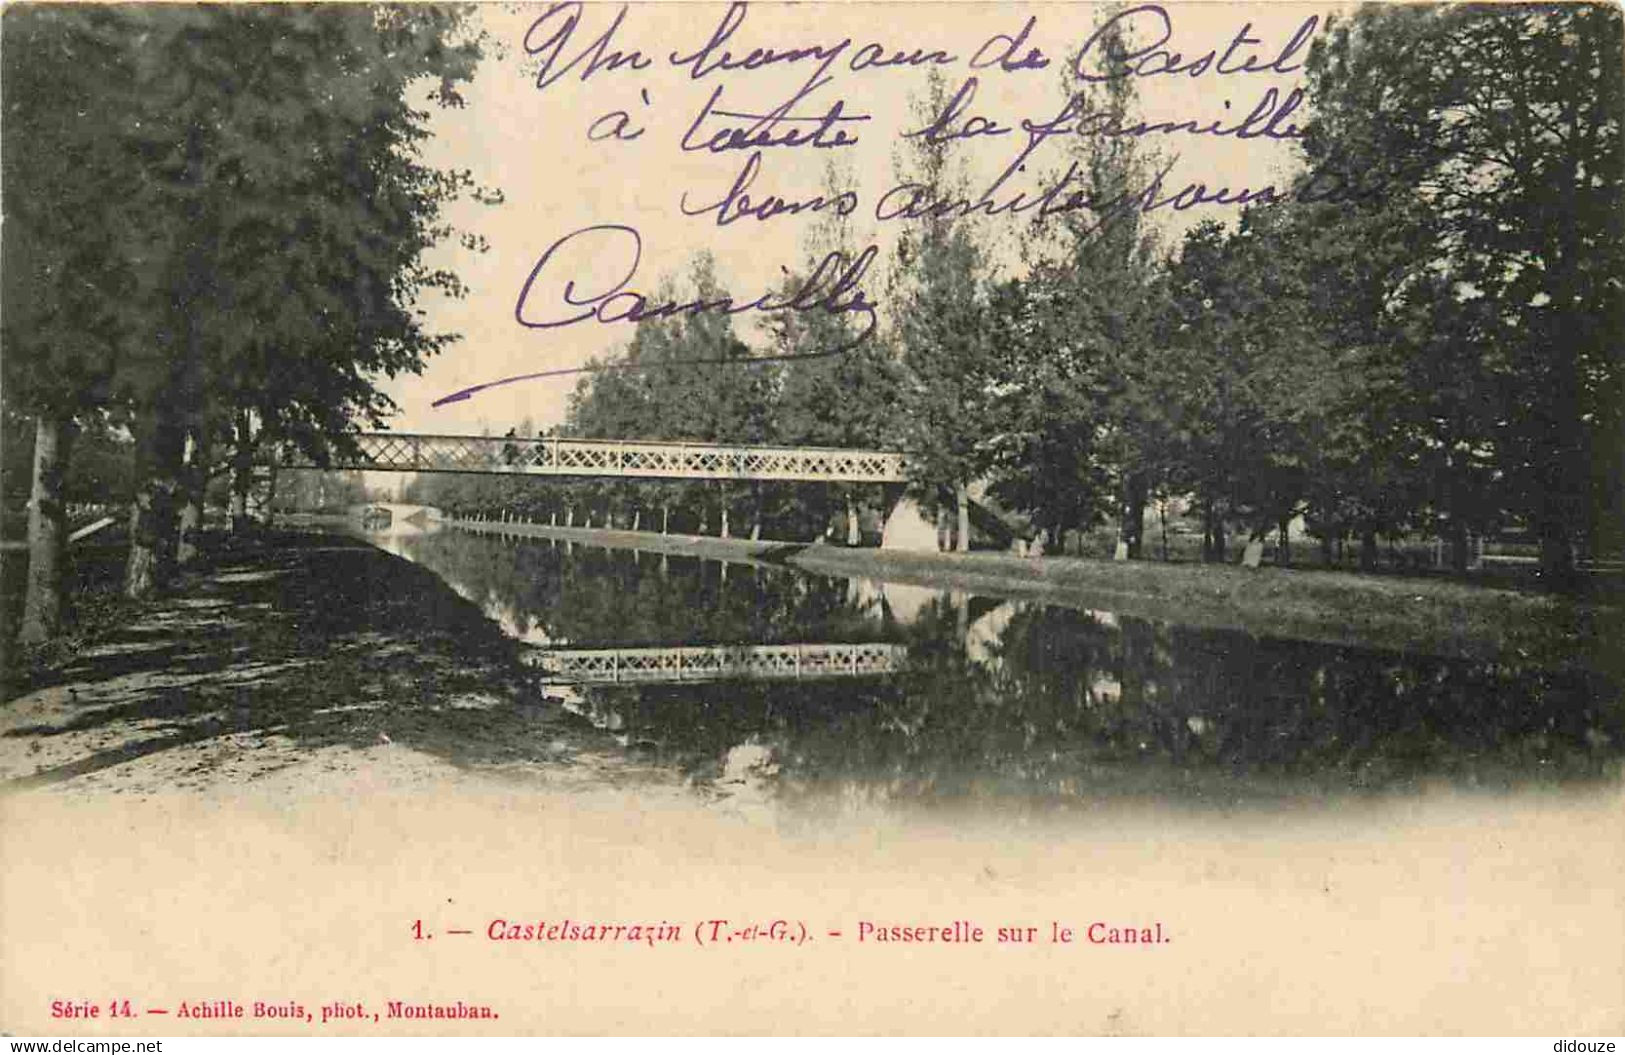 Un bonjour de Castel
à toute la famille
bons amitas pour
Camille
1. — Castelsarrazin (T.-et-G.). - Passerelle sur le Canal.
Série 14. — Achille Bouis, phot., Montauban.
delcampe.net
didouze